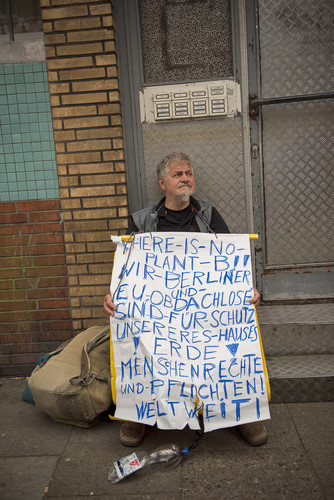 THERE-IS-NO
PLANT-B!!
WIR-BERLINER
UND
EU-OBDACHLOSE
SIND-FÜR-SCHUTZ
UNSERERES-HAUSES
ERDE
MENSCHENRECHTE
UND-PFLICHTEN!
WELTWEIT!